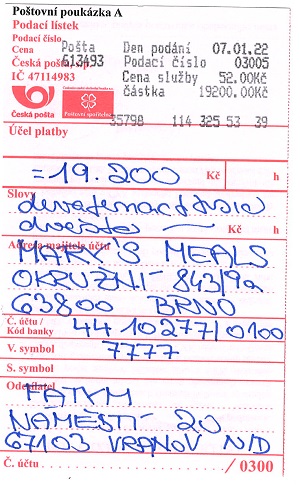 Poštovní poukázka A
Podací lístek
Podací číslo
Pošta Den podání 07.01.22
Cena
613493 Podací číslo 03005
Česká pošta
Cena služby 52.00Kč
IČ 47114983
částka 19200.00Kč
Česká pošta
Poštovní spořitelna
35798 114 325 53 39
Účel platby
=19.200 Kč h
Slovy
devatenacttisic
dvěstě — Kč h
Adresa majitele účtu
MARY'S MEALS
OKRUŽNÍ 843/9a
63800 BRNO
Č. účtu / Kód banky
44 10277/0100
V. symbol
7777
S. symbol
Odesílatel
FATYM
NÁMĚSTÍ 20
67103 VRANOV N/D
Č. účtu / 0300